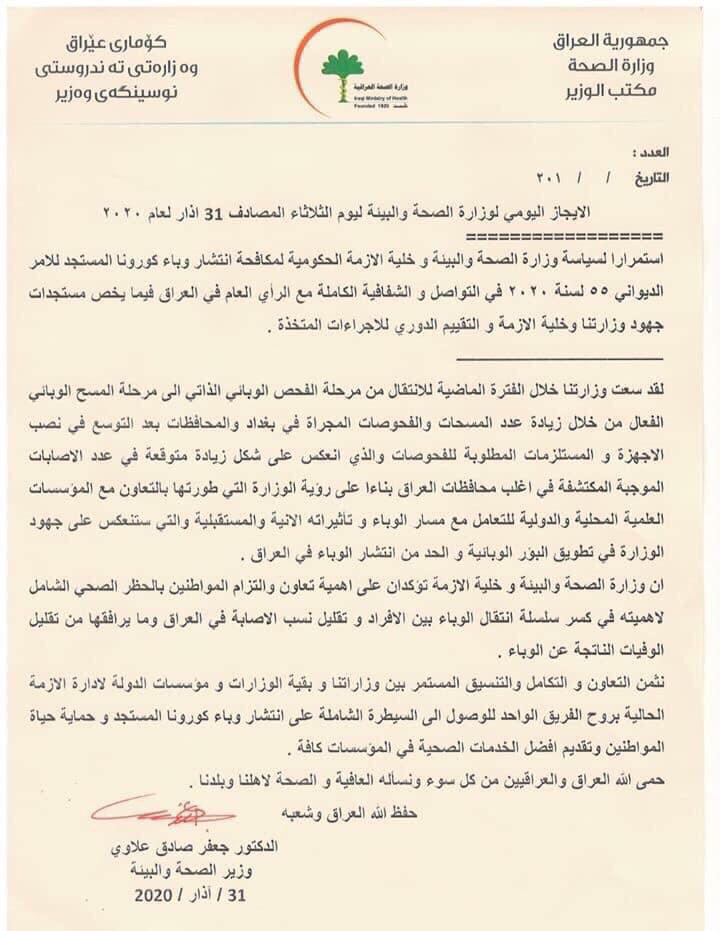 جمهورية العراق
وزارة الصحة
مكتب الوزير
كۆماری عێراق
وه زارەتی ته ندروستی
نوسینگەی وەزیر
وزارة الصحة العراقية
Iraqi Ministry of Health
Founded 1920
العدد :
التاريخ / / ٢٠١
الايجاز اليومي لوزارة الصحة والبيئة ليوم الثلاثاء المصادف 31 اذار لعام ٢٠٢٠
==================
استمرارا لسياسة وزارة الصحة والبيئة و خلية الازمة الحكومية لمكافحة انتشار وباء كورونا المستجد للامر
الديواني ٥٥ لسنة ٢٠٢٠ في التواصل و الشفافية الكاملة مع الرأي العام في العراق فيما يخص مستجدات
جهود وزارتنا وخلية الازمة و التقييم الدوري للاجراءات المتخذة .
لقد سعت وزارتنا خلال الفترة الماضية للانتقال من مرحلة الفحص الوبائي الذاتي الى مرحلة المسح الوبائي
الفعال من خلال زيادة عدد المسحات والفحوصات المجراة في بغداد والمحافظات بعد التوسع في نصب
الاجهزة و المستلزمات المطلوبة للفحوصات والذي انعكس على شكل زيادة متوقعة في عدد الاصابات
الموجبة المكتشفة في اغلب محافظات العراق بناءا على رؤية الوزارة التي طورتها بالتعاون مع المؤسسات
العلمية المحلية والدولية للتعامل مع مسار الوباء و تأثيراته الانية والمستقبلية والتي ستنعكس على جهود
الوزارة في تطويق البؤر الوبائية و الحد من انتشار الوباء في العراق .
ان وزارة الصحة والبيئة و خلية الازمة تؤكدان على اهمية تعاون والتزام المواطنين بالحظر الصحي الشامل
لاهميته في كسر سلسلة انتقال الوباء بين الافراد و تقليل نسب الاصابة في العراق وما يرافقها من تقليل
الوفيات الناتجة عن الوباء .
نثمن التعاون و التكامل والتنسيق المستمر بين وزاراتنا و بقية الوزارات و مؤسسات الدولة لادارة الازمة
الحالية بروح الفريق الواحد للوصول الى السيطرة الشاملة على انتشار وباء كورونا المستجد و حماية حياة
المواطنين وتقديم افضل الخدمات الصحية في المؤسسات كافة .
حمى الله العراق والعراقيين من كل سوء ونسأله العافية و الصحة لاهلنا وبلدنا .
حفظ الله العراق وشعبه
الدكتور جعفر صادق علاوي
وزير الصحة والبيئة
31 / أذار / 2020